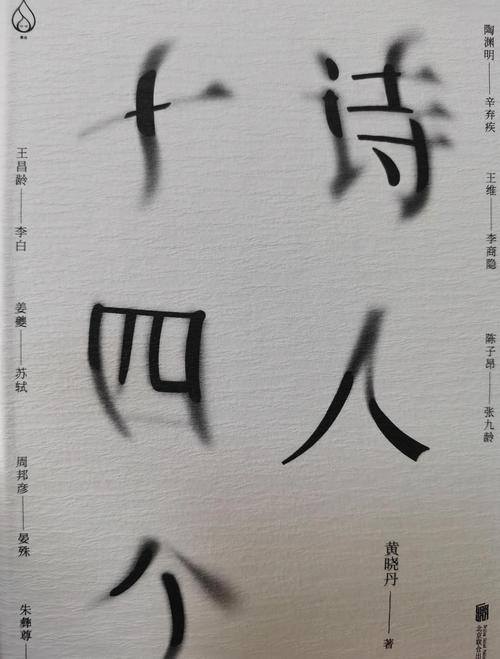 诗人
十四个
陶渊明——辛弃疾
王维——李商隐
陈子昂——张九龄
王昌龄——李白
姜夔——苏轼
周邦彦——晏殊
朱彝尊——
黄晓丹——著
北京联合出